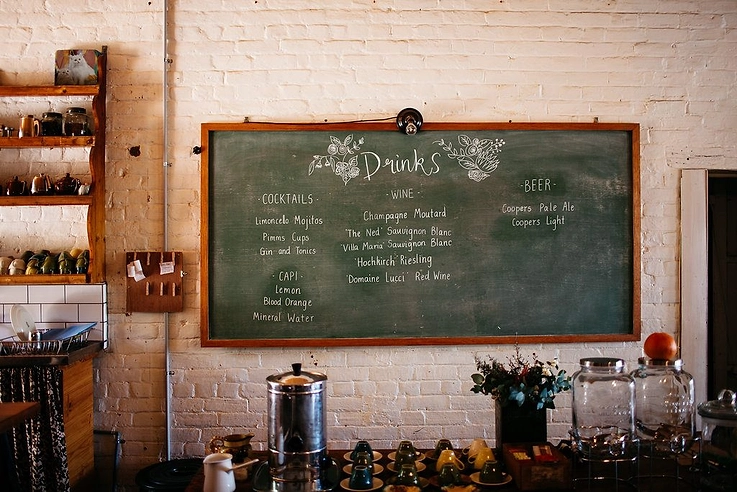 Drinks
- COCKTAILS -
Limoncello Mojitos
Pimms Cups
Gin and Tonics
- CAPI -
Lemon
Blood Orange
Mineral Water
- WINE -
Champagne Moutard
'The Ned' Sauvignon Blanc
'Villa Maria' Sauvignon Blanc
'Hochkirch' Riesling
'Domaine Lucci' Red Wine
- BEER -
Coopers Pale Ale
Coopers Light